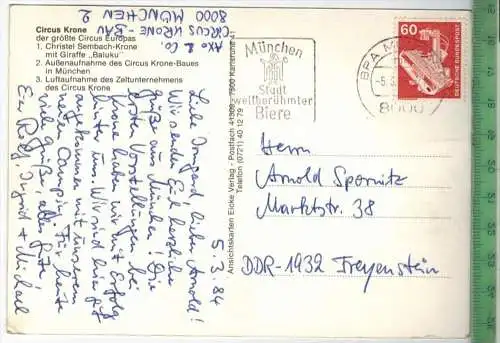 Circus Krone
der größte Circus Europas
1. Christel Sembach-Krone
mit Giraffe „Baluku"
2. Außenaufnahme des Circus Krone-Baues
in München
3. Luftaufnahme des Zeltunternehmens
des Circus Krone
AXO & CO.
CIRCUS KRONE - BAU
8000 MÜNCHEN 2
5.3.84
Liebe Irmgard, lieber Arnold!
Wir senden Euch herzliche
Grüße aus München! Die
ersten Vorstellungen bei
Krone haben wir mit Erfolg
hinter uns. Wir sind hier gut
angekommen mit unserem
neuen Camping. Für heute
viele Grüße, alles Gute!
Eure Ingrid + Michael
Ansichtskarten Eicke Verlag - Postfach 41309 - 7500 Karlsruhe 41
Telefon (0721) 40 12 79
München
Stadt
weltberühmter
Biere
BPA M
-5.
8000
60
DEUTSCHE BUNDESPOST
Herrn
Arnold Spornitz
Marktstr. 38
DDR-1932 Freyenstein